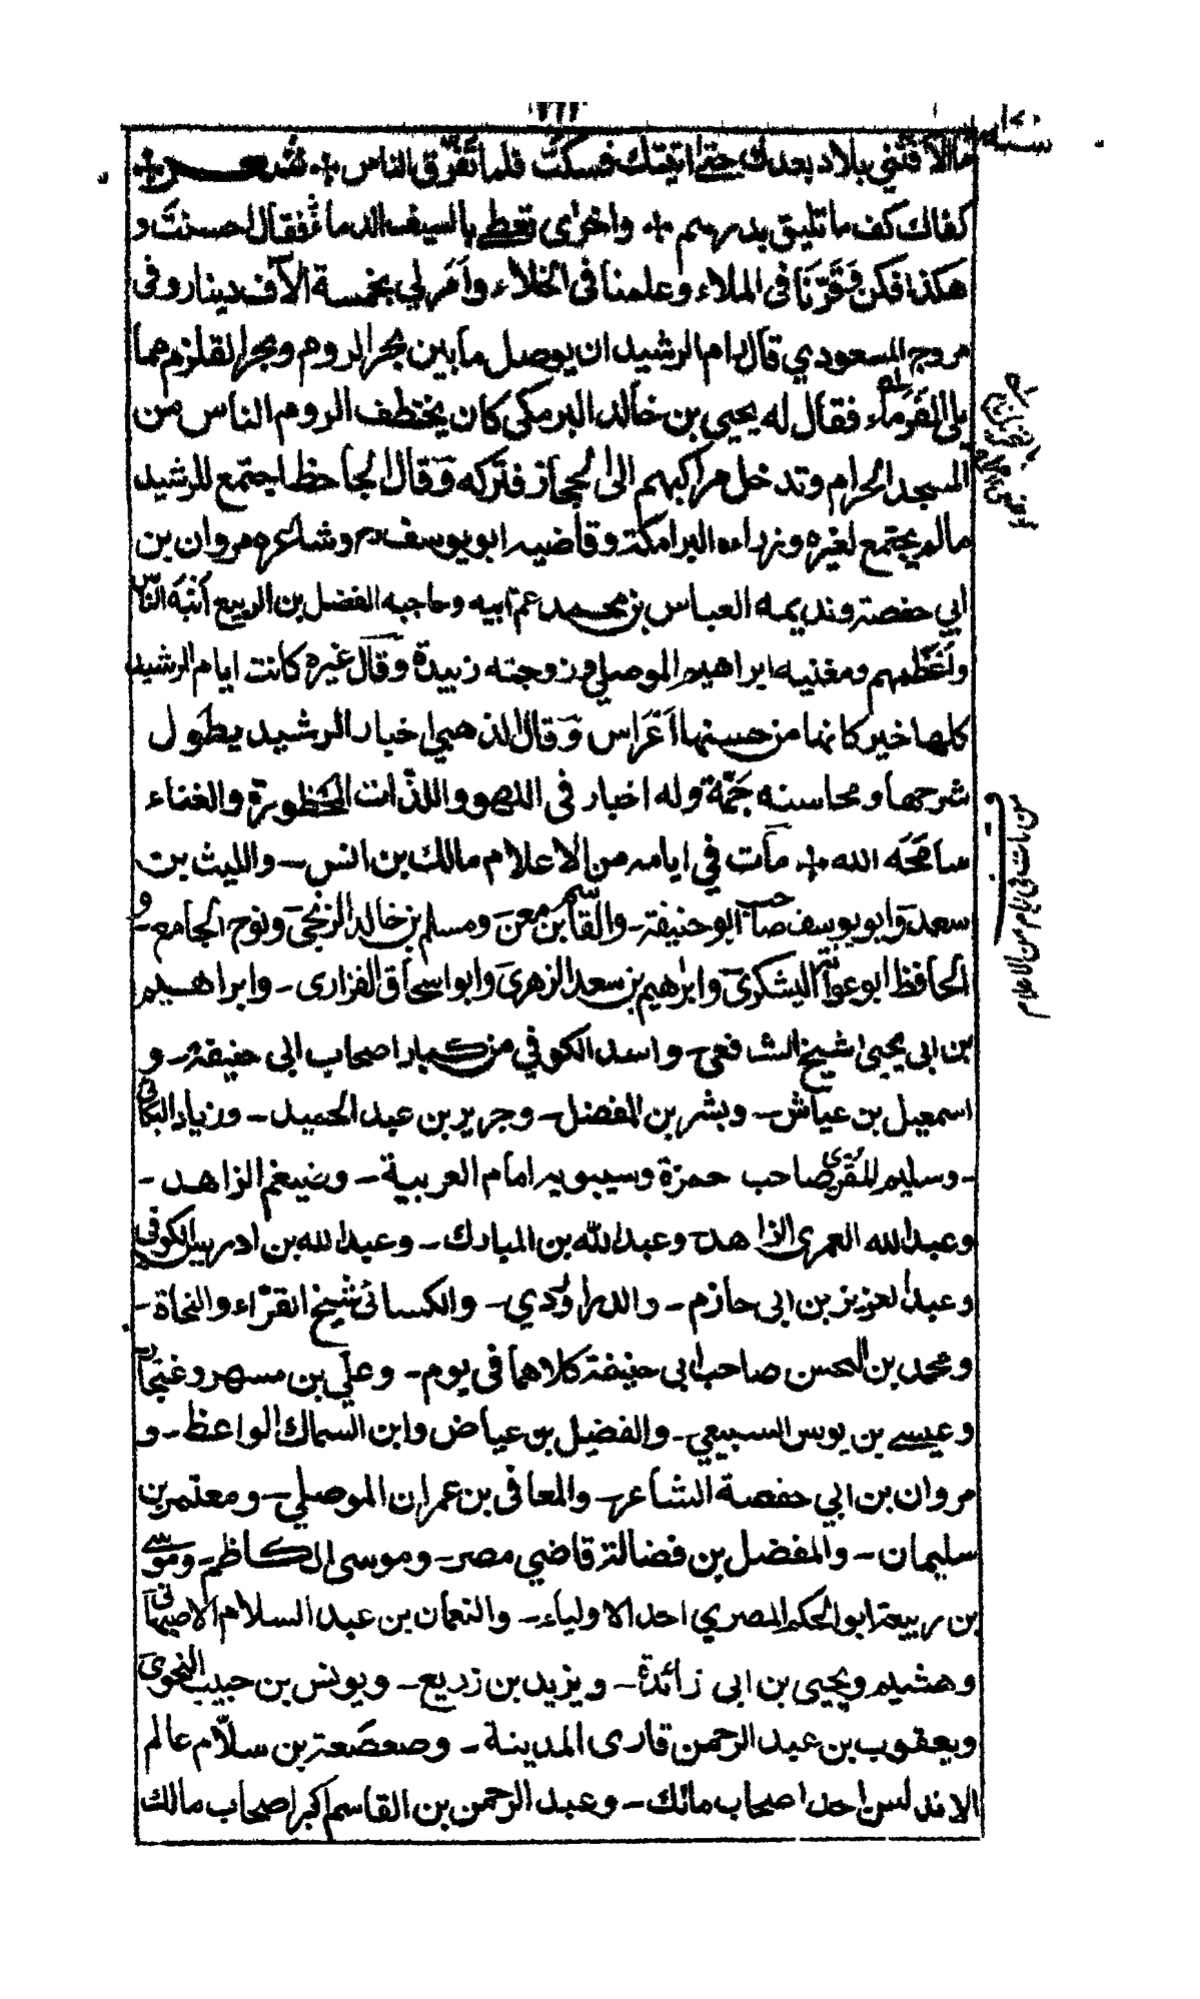 ما لاقتني بلاد بعدك حتى اتيتك فسكت فلما تفرق الناس + شعر +
كفاك كف ما تليق بدرهم + واخرى تعطي بالسيف الدما فقال احسنت و
هكذا فكن وَقِّرْنَا فى الملاء وعلمنا فى الخلاء وامر لي بخمسة الآف دينار وفى
مروج المسعودي قال رام الرشيد ان يوصل ما بين بحر الروم وبحر القلزم مما
يلى الفرماء فقال له يحيى بن خالد البرمكى كان يختطف الروم الناس من
المسجد الحرام وتدخل مراكبهم الى الحجاز فتركه وقال الجاحظ اجتمع للرشيد
مالم يجتمع لغيره وزراءه البرامكة وقاضيه ابو يوسف رح وشاعره مروان بن
ابي حفصة ونديمه العباس بن محمد عم ابيه وحاجبه الفضل بن الربيع أنبَه الناس
وأعظمهم ومغنيه ابراهيم الموصلي وزوجته زبيدة وقال غيره كانت ايام الرشيد
كلها خير كانها من حسنها أعراس وقال الذهبي اخبار الرشيد يطول
شرحها ومحاسنه جَمّة وله اخبار فى اللهو واللذّات المحظورة والغناء
سامحَه الله + مات في ايامه من الاعلام مالك بن انس - والليث بن
سعد وابو يوسف صاحب ابو حنيفة - والقاسم بن معن ومسلم بن خالد الزنجى ونوح الجامع - و
الحافظ ابو عوانة اليشكرى وابرهيم بن سعد الزهرى وابو اسحاق الفزارى - وابراهيم
بن ابى يحيى شيخ الشافعى - واسد الكوفي من كبار اصحاب ابى حنيفة - و
اسمعيل بن عياش - وبشر بن المفضل - وجرير بن عبد الحميد - وزياد البكائى
- وسليم المقرى صاحب حمزة وسيبويه امام العربية - وضيغم الزاهد -
وعبد الله العمرى الزاهد - وعبد الله بن المبارك - وعبد الله بن ادريس الكوفى
وعبد العزيز بن ابى حازم - والدراوردي - والكسائى شيخ القرّاء والنحاة -
ومحمد بن الحسن صاحب ابى حنيفة كلاهما فى يوم - وعلي بن مسهر وغنجار
وعيسى بن يونس السبيعي - والفضيل بن عياض وابن السماك الواعظ - و
مروان بن ابي حفصة الشاعر - والمعافى بن عمران الموصلي - ومعتمر بن
سليمان - والمفضل بن فضالة قاضي مصر - وموسى الكاظم - وموسى
بن ربيعة ابو الحكم المصري احد الاولياء - والنعمان بن عبد السلام الاصبهانى
وهشيم ويحيى بن ابى زائدة - ويزيد بن زريع - ويونس بن حبيب النحوى
ويعقوب بن عبد الرحمن قارى المدينة - وصعصعة بن سلّام عالم
الاندلس احد اصحاب مالك - وعبد الرحمن بن القاسم اكبر اصحاب مالك
من مات فى ايام من الاعلام